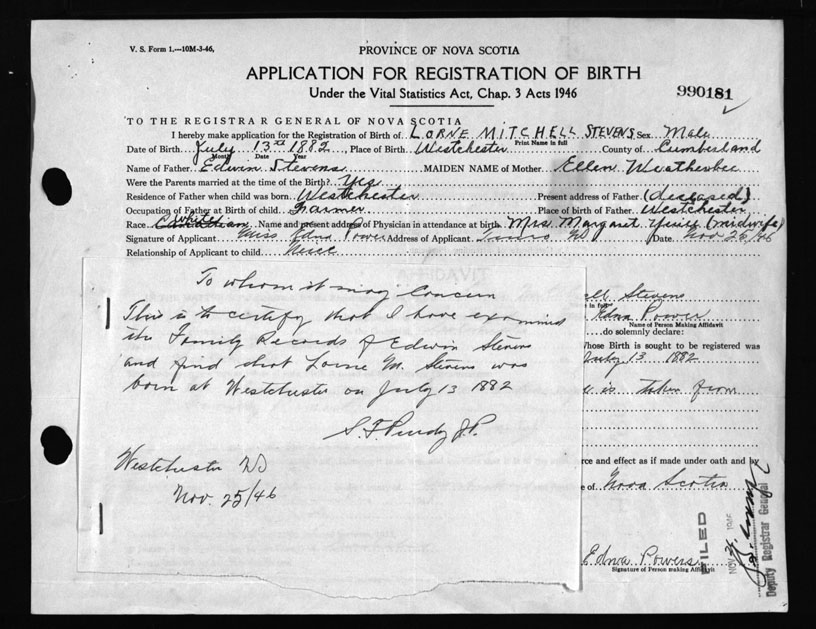 V. S. Form 1.—10M-3-46,
PROVINCE OF NOVA SCOTIA
APPLICATION FOR REGISTRATION OF BIRTH
Under the Vital Statistics Act, Chap. 3 Acts 1946
990181
TO THE REGISTRAR GENERAL OF NOVA SCOTIA
I hereby make application for the Registration of Birth of LORNE MITCHELL STEVENS Sex Male
Print Name in full
Date of Birth July 13th 1882 Place of Birth Westchester County of Cumberland
Month Date Year
Name of Father Edwin Stevens MAIDEN NAME of Mother Ellen Weatherbee
Were the Parents married at the time of the Birth? Yes
Residence of Father when child was born Westchester Present address of Father (deceased)
Occupation of Father at Birth of child Farmer Place of birth of Father Westchester
Race White Canadian Name and present address of Physician in attendance at birth Mrs Margaret (midwife)
Signature of Applicant Miss Edna Power Address of Applicant Truro NS Date Nov 25/46
Relationship of Applicant to child Niece
To whom it may Concern
This is to certify that I have examined
the Family Records of Edwin Stevens
and find that Lorne M. Stevens was
born at Westchester on July 13 1882
S. F. Purdy J.P.
Westchester NS
Nov. 25/46
ell Stevens
Edna Power
Name of Person Making Affidavit
do solemnly declare:
hose Birth is sought to be registered was
July 13 1882
is taken from
rce and effect as if made under oath and by
e of Nova Scotia
Edna Powers
Signature of Person making Affidavit
FILED
NOV 1946
Deputy Registrar General